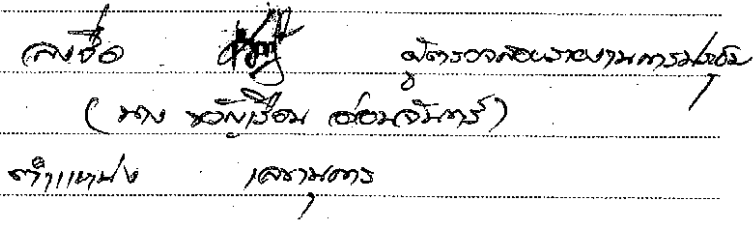 ลงชื่อ ผู้ตรวจสอบรายงานการประชุม
(นาง ขวัญเรือน อ่อนจันทร์)
ตำแหน่ง เลขานุการ